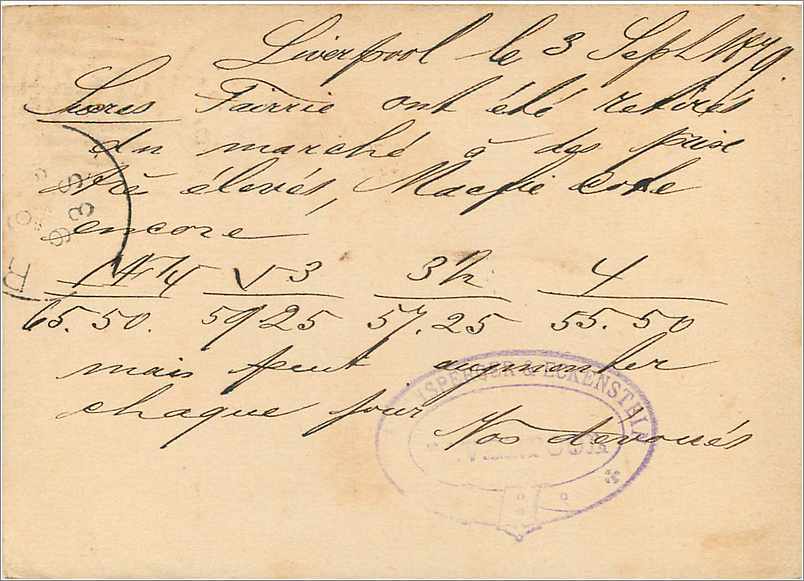 Liverpool le 3 Sept 1879.
Sucres Fairrie ont été retirés
du marché à des prix
très élevés, Macfie cote
encore
√3 3½ 4
65.50. 59.25 57.25 55.50
mais peut augmenter
chaque jour
Vos dévoués
SPERGER & ECKENSTEIN
LIVERPOOL